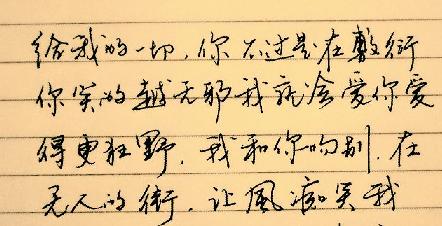 给我的一切,你不过是在敷衍
你笑的越无邪我就会爱你爱
得更狂野,我和你吻别,在
无人的街,让風痴笑我